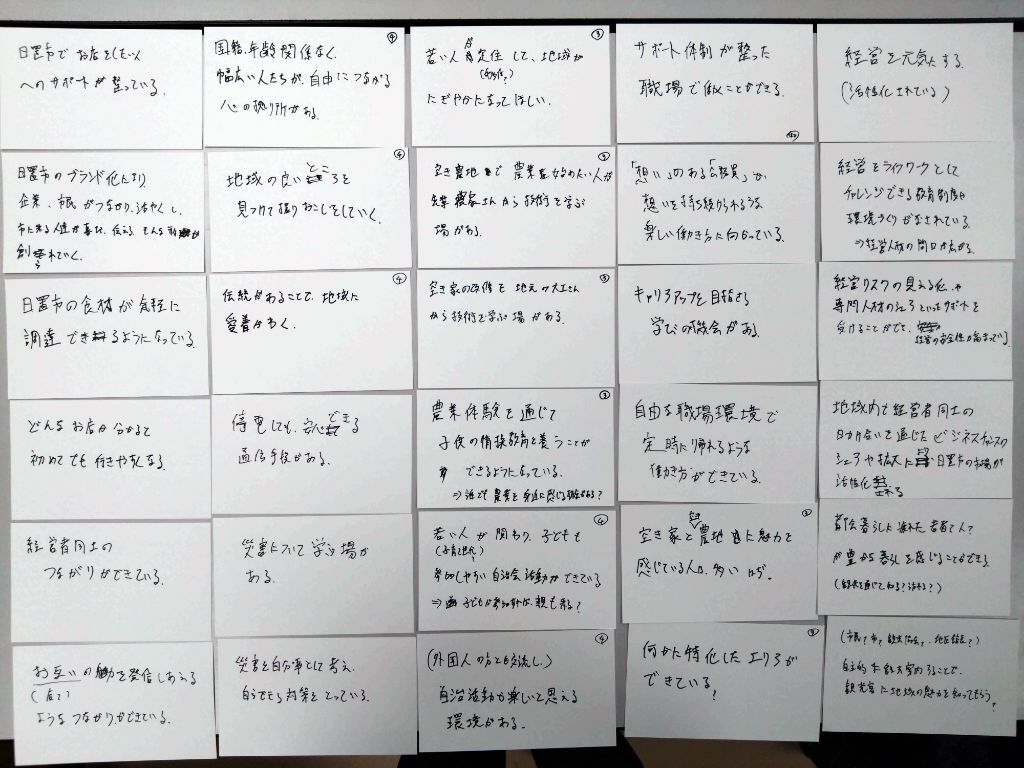 日置市でお店をしたい人
へのサポートが整っている。
④
国籍、年齢関係なく
幅広い人たちが、自由につながる
心の拠り所がある。
③
若い人が定住して、地域が
にぎやかになってほしい。
サポート体制が整った
職場で働くことができる。
経営を元気にする。
(活性化されている)
日置市のブランド化により
企業、市民がつながり、活やくし、
創られていく。
④
地域の良いところを
見つけて掘りおこしをしていく。
②
空き農地で農業を始めたい人が
農家さんから技術を学ぶ
場がある。
「想い」のある「公務員」が
想いを持ち続けられるような
楽しい働き方に向かっている。
経営をライフワークとして
チャレンジできる教育制度や
環境づくりがなされている。
⇒経営人材の間口が広がる。
日置市の食材が気軽に
調達できるようになっている。
④
伝統があることで、地域に
愛着がわく。
③
空き家の改修を地元の大工さん
から技術を学ぶ場がある。
キャリアアップを目指せる
学びの機会がある。
経営リスクの見える化や
専門人材の といったサポートを
受けることができ、
経営の安全性が高まっている。
どんなお店か分かると
初めてでも行きやすくなる。
停電しても、安心できる
通信手段がある。
②
農業体験を通じて
子供の情操教育を養うことが
できるようになっている。
⇒誰でも農業を身近に感じる機会がある?
自由な職場環境で
定時に帰れるような
働き方ができている。
地域内で経営者同士の
を通じたビジネスチャンスの
シェアや拡大により日置市の市場が
活性化される
経営者同士の
つながりができている。
災害について学ぶ場が
ある。
④
若い人が関わり、子どもも
(子育て世代)
参加しやすい自治会活動ができている
⇒子どもが参加すれば、親も来る?
②
空き家と農地に魅力を
感じている人は、多いはず。
都会暮らしに疲れた若者で人?
が豊かな暮らしを感じることができる
お互いの動きを発信しあえる
(店で)
ようなつながりができている。
災害を自分事として考え、
自らできる対策をとっている。
④
(外国人の方とも交流し、)
自治活動が楽しいと思える
環境がある。
③
何かに特化したエリアが
できている?
観光客に地域の魅力を知ってもらう。